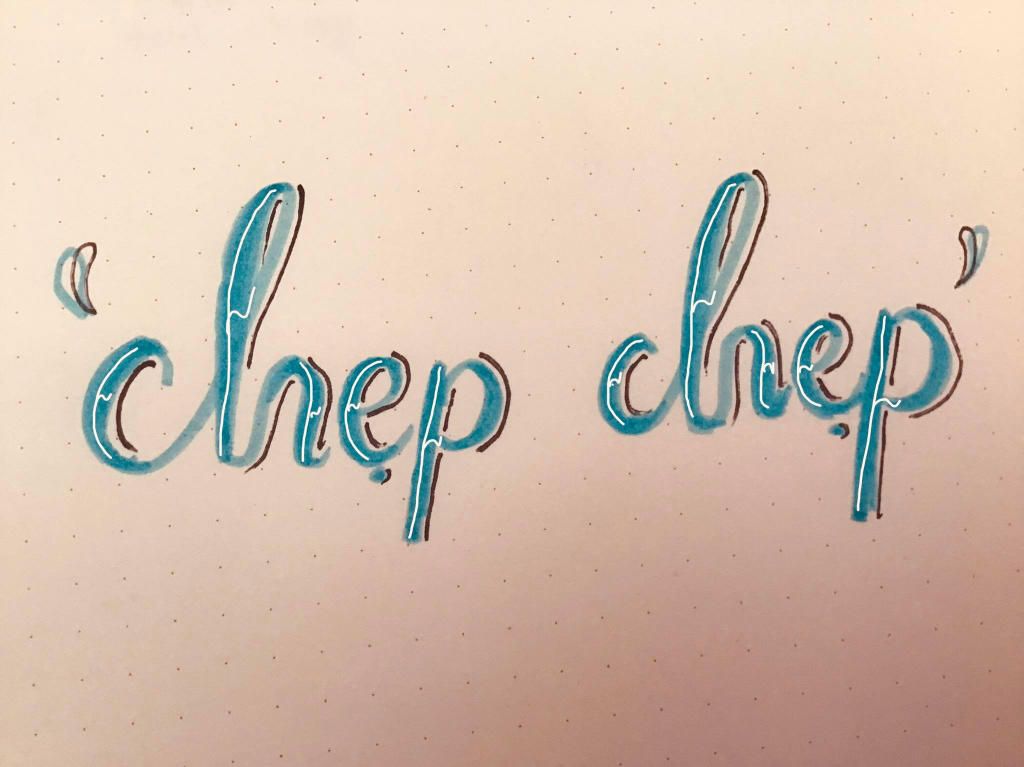 ‘chẹp chẹp’